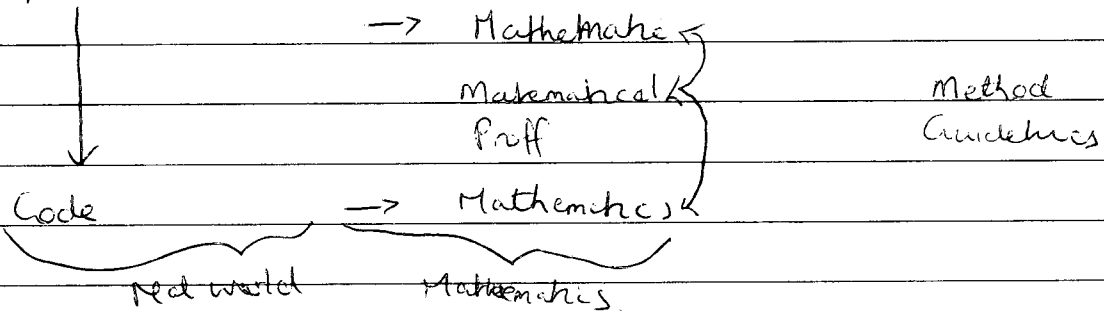 → Mathematic
Matematical Method
Proff Guidelines
Code → Mathematics
real world Mathematics